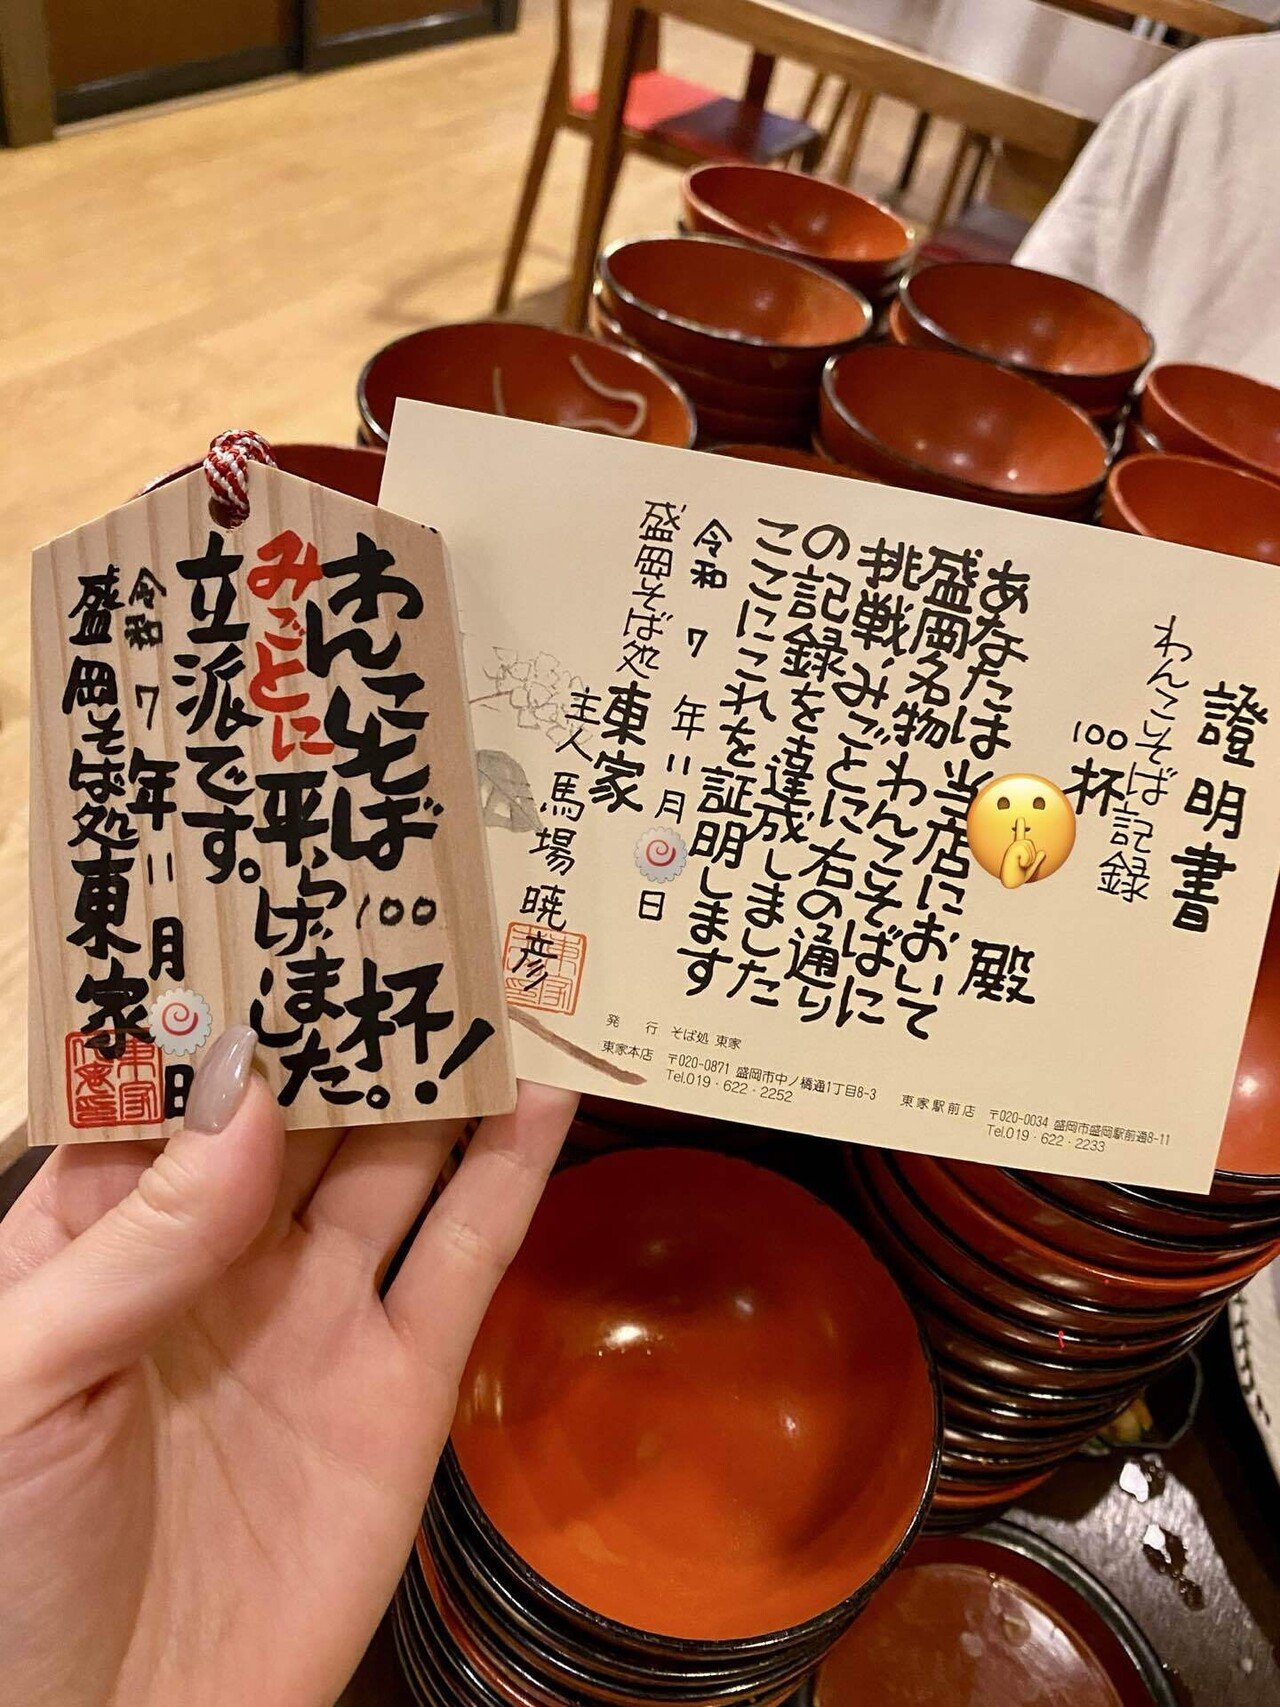 わんこそば100杯!
みごとに平らげました。
立派です。
令和7年11月 日
盛岡そば処東家
證明書
わんこそば記録
100杯
殿
あなたは当店において
盛岡名物わんこそばに
挑戦、みごとに右の通り
の記録を達成しました
ここにこれを証明します
令和7年11月 日
盛岡そば処東家
主人 馬場暁彦
発行 そば処 東家
東家本店 〒020-0871 盛岡市中ノ橋通1丁目8-3
Tel.019・622・2252
東家駅前店 〒020-0034 盛岡市盛岡駅前通8-11
Tel.019・622・2233